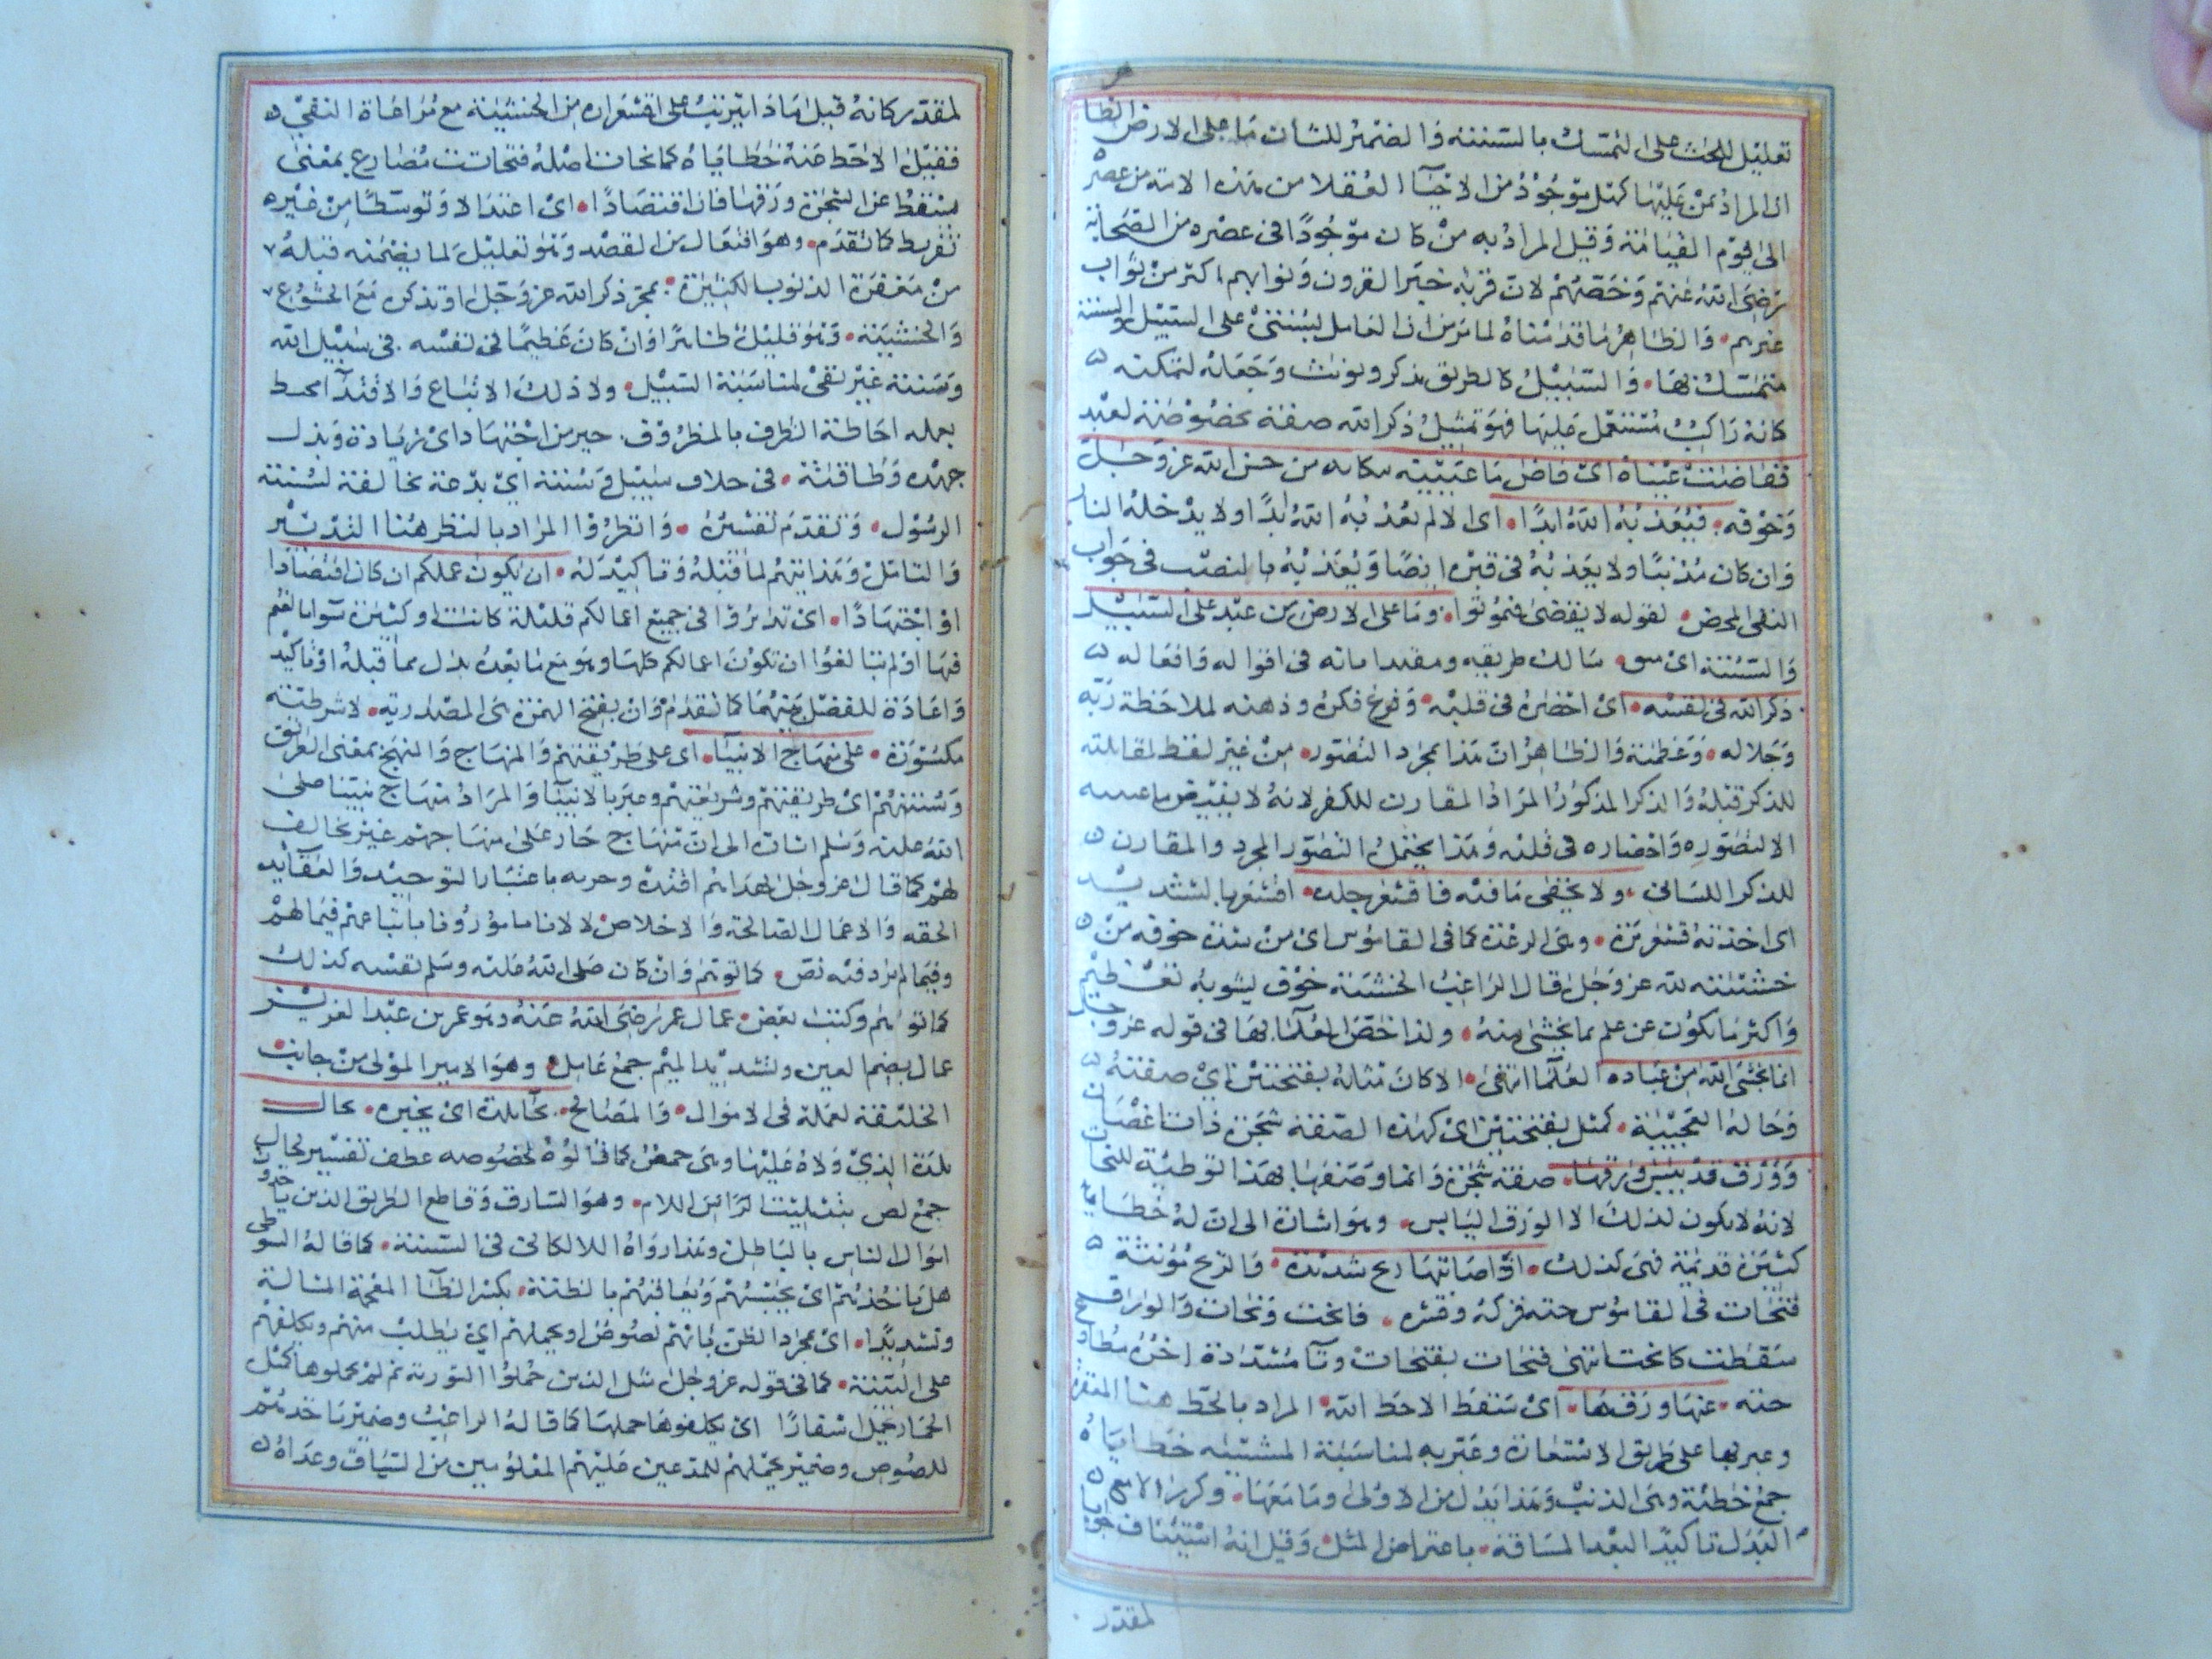 تعليل للحث على التمسك بالسنة والضمير للشأن ما على الارض الظا
ان المراد بمن عليها كل موجود من الاحياء العقلا من هذه الامة من عصره
الى يوم القيامة وقيل المراد به من كان موجودا في عصره من الصحابة
رضى الله عنهم وخصهم لان قرنه خير القرون وثوابهم اكثر من ثواب
غيرهم والظاهر ما قدمناه لما مر من ان العامل بسنته على السبيل والسنة
متمسك بها والسبيل كالطريق يذكر ويونث وجعله لتمكنه
كانه راكب مستعل عليها فهو تمثيل ذكر الله صفة مخصوصة لعبد
ففاضت عيناه اى فاض ما عينيه من الله عز وجل
وخوفه فيعذبه الله ابدا اى لا لم يعذبه الله ابدا ولا يدخله النار
وان كان مذنبا ولا يعذبه في قبره ايضا ويعذبه بالنصب في جواب
النفى المحض لقوله لا يقضى فيموتوا وما على الارض من عبد على السبيل
والسنة اى سالك طريقه في اقواله وافعاله
ذكر الله في نفسه اى احضره في قلبه وفرغ فكره وذهنه لملاحظة ربه
وجلاله وعظمته والظاهر ان هذا مجرد التصور من غير لفظ لمقابلته
للذكر قبله والذكر المذكور المراد المقارن للكفر لانه لا
الا لتصوره واحضاره في قلبه وهذا يحتمل التصور المجرد والمقارن
للذكر اللسانى ولا يخفى ما فيه فاقشعر جلده اقشعر بالتشديد
اى اخذته قشعريرة وهى الرعدة كما في القاموس اى من شدة خوفه من
خشيته لله عز وجل قال الراغب الخشية خوف يشوبه تعظيم
واكثر ما يكون عن علم بما يخشى منه ولذا خص العلما بها في قوله عز وجل
انما يخشى الله من عباده العلما انتهى الا كان مثله بفتحتين اى صفته
وحاله العجيبة كمثل بفتحتين اى كهذه الصفة شجرة ذات اغصان
وورق قد يبس ورقها صفة شجرة وانما وصفها بهذا توطية للتحات
لانه لا يكون لذلك الا الورق اليابس وهو اشارة الى ان له خطايا
كثيرة قديمة فهى كذلك اذ اصابتها ريح شديدة والريح مؤنثة
فتحات في القاموس حته فركه وقشره فانحت وتحات والورق
سقطت كانحت انتهى فتحات بفتحات وتا مشددة اخره مطاوع
حته عنها ورقها اى سقط الا حط الله المراد بالحط هنا المغفرة
وعبر بها على طريق الاستعارة وعبر به لمناسبة المشبه خطاياه
جمع خطئة وهى الذنب وهذا بدل من الاولى وما معها وكرر الا مع
البدل تاكيدا لبعد المسافة باعتراض المثل وقيل انه استيناف جواب
لمقدر
لمقدر كانه قيل ماذا يترتب على اقشعراره من الخشية مع مراعاة النفى
فقيل الا حط عنه خطاياه كما تحات اصله فتحاتت مضارع بمعنى
سقط عن الشجرة ورقها فان اقتصادا اى اعتدالا وتوسطا من غير
تفريط كما تقدم وهو افتعال من القصد وهو تعليل لما يضمنه قبله
من مغفرة الذنوب الكثيرة بمجرد ذكر الله عز وجل او تذكره مع الخشوع
والخشية وهو قليل ظاهرا وان كان عظيما في نفسه في سبيل الله
وسنة غير نفى لمناسبة السبيل ولا ذلك الاتباع والاقتدا محيط
بعمله احاطة الظرف بالمظروف خير من اجتهاد اى زيادة وبذل
جهده وطاقته في خلاف سبيل وسنة اى بدعة مخالفة لسنة
الرسول وتقدم تفسيره وانظروا المراد بالنظر هنا التدبر
والتامل وهذا نتيجة لما قبله وتاكيد له ان يكون عملكم ان كان اقتصادا
او اجتهادا اى تدبروا في جميع اعمالكم قليلة كانت او كثيرة سوا بالغتم
فيها او لم تبالغوا ان تكون اعمالكم كلها وهو مع ما بعده بدل مما قبله او تاكيد
واعادة للفصل بينهما كما تقدم وان بفتح الهمزة هى المصدرية لا شرطية
مكسورة على منهاج الانبيا اى على طريقتهم والمنهاج والنهج بمعنى الطريق
وسنتهم اى طريقتهم وشريعتهم وعبر بالانبيا والمراد منهاج نبينا صلى
الله عليه وسلم اشارة الى ان منهاج جار على منهاجهم غير مخالف
لهم كما قال عز وجل فبهداهم اقتده باعتبار التوحيد والعقايد
الحقة والاعمال الصالحة والاخلاص لا لانا مامورون باتباعهم فيما لهم
وفيما لم يرد فيه نص كما توهم وان كان صلى الله عليه وسلم نفسه كذلك
كما توهم وكتب بعض عمال عمر رضى الله عنه وهو عمر بن عبد العزيز
عمال بضم العين وتشديد الميم جمع عامل وهو الامير المولى من جانب
الخليفة لعمله في الاموال والمصالح بحال بلده اى يخبره بحال
بلده الذى ولاه عليها وهى حمص كما قالوه لخصوصه عطف تفسير لحال
جمع لص بتثليث اللام وهو السارق وقاطع الطريق الذين ياخذون
اموال الناس بالباطل وهذا رواه اللالكائى في السنة كما قاله السيوطى
هل ياخذهم اى يحبسهم ويعاقبهم بالظنة بكسر الظا المعجمة المشالة
وتشديد اى بمجرد الظن بانهم لصوص او يحملهم اى يطلب منهم ويكلفهم
على البينة كما في قوله عز وجل مثل الذين حملوا التورية ثم لم يحملوها كمثل
الحمار يحمل اسفارا اى يكلفوها حملها كما قاله الراغب وضمير ياخذهم
للصوص وضمير يحملهم للمدعين عليهم المعلومين من السياق وعداه